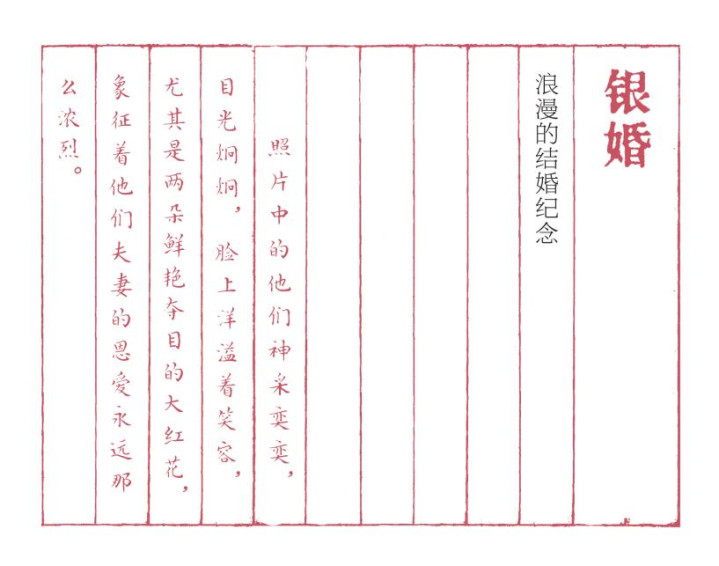 银婚
浪漫的结婚纪念
照片中的他们神采奕奕，
目光炯炯，脸上洋溢着笑容，
尤其是两朵鲜艳夺目的大红花，
象征着他们夫妻的恩爱永远那
么浓烈。